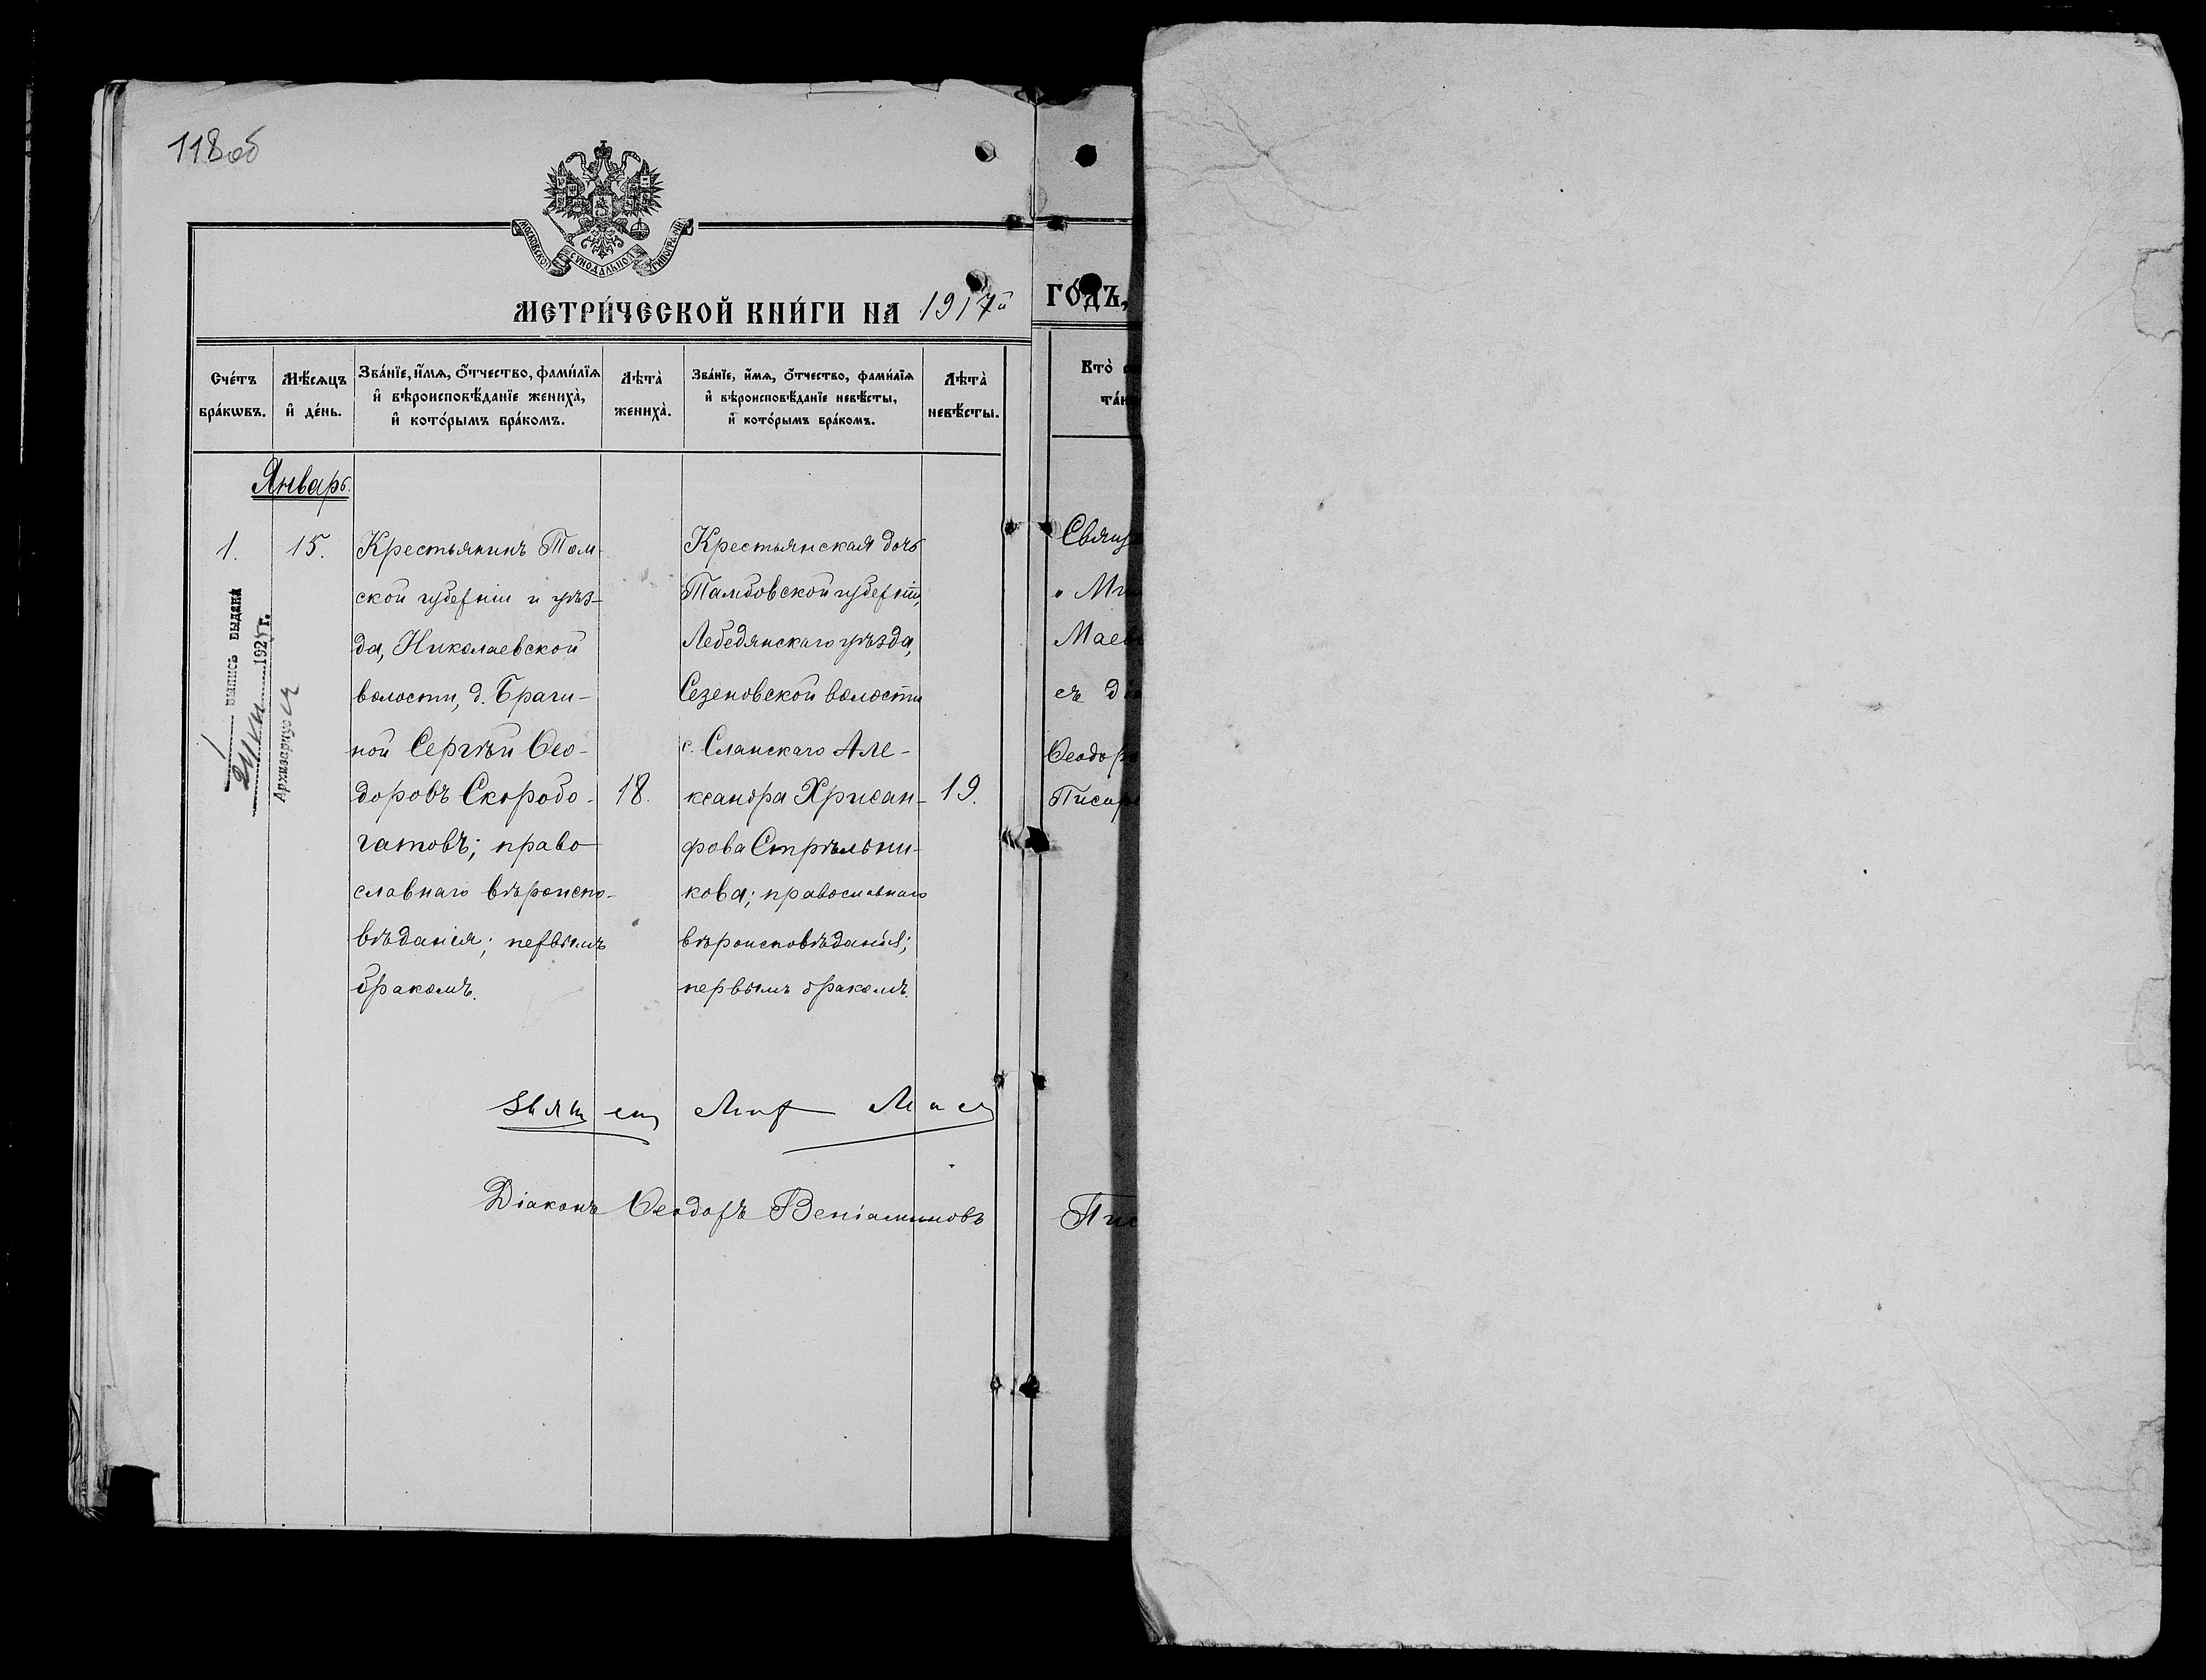 118 об
МОСКОВСКОЙ СѴНОДАЛЬНОЙ ТИПОГРАФІИ
МЕТРИ́ЧЕСКОЙ КНИ́ГИ НА 1917й ГО́ДЪ,
Сче́тъ бра́кѡвъ.
Мѣ́сѧцъ и҆ де́нь.
Зва́нїе, и҆́мѧ, ѻ҆́тчество, фами́лїѧ и҆ вѣроисповѣ́данїе жениха̀, и҆ кото́рымъ бра́комъ.
Лѣта̀ жениха̀.
Зва́нїе, и҆́мѧ, ѻ҆́тчество, фами́лїѧ и҆ вѣроисповѣ́данїе невѣ́сты, и҆ кото́рымъ бра́комъ.
Лѣта̀ невѣ́сты.
Кто̀
Январь.
1.
15.
Крестьянинъ Том-
ской губерніи и уѣз-
да, Николаевской
волости, д. Браги-
ной Сергѣй Ѳео-
доровъ Скоробо-
гатовъ; право-
славнаго вѣроиспо-
вѣданія; первымъ
бракомъ.
18.
Крестьянская дочь
Тамбовской губерніи,
Лебедянскаго уѣзда,
Сезеновской волости
с. Сланскаго Але-
ксандра Хрисан-
фова Стрѣльни-
кова; православнаго
вѣроисповѣданія;
первымъ бракомъ.
19.
Свящ
Мих
Маев
съ ді
Ѳеодор
Писар
выпись выдана
192 г.
Архивариус
Діаконъ Ѳеодоръ Веніаминовъ